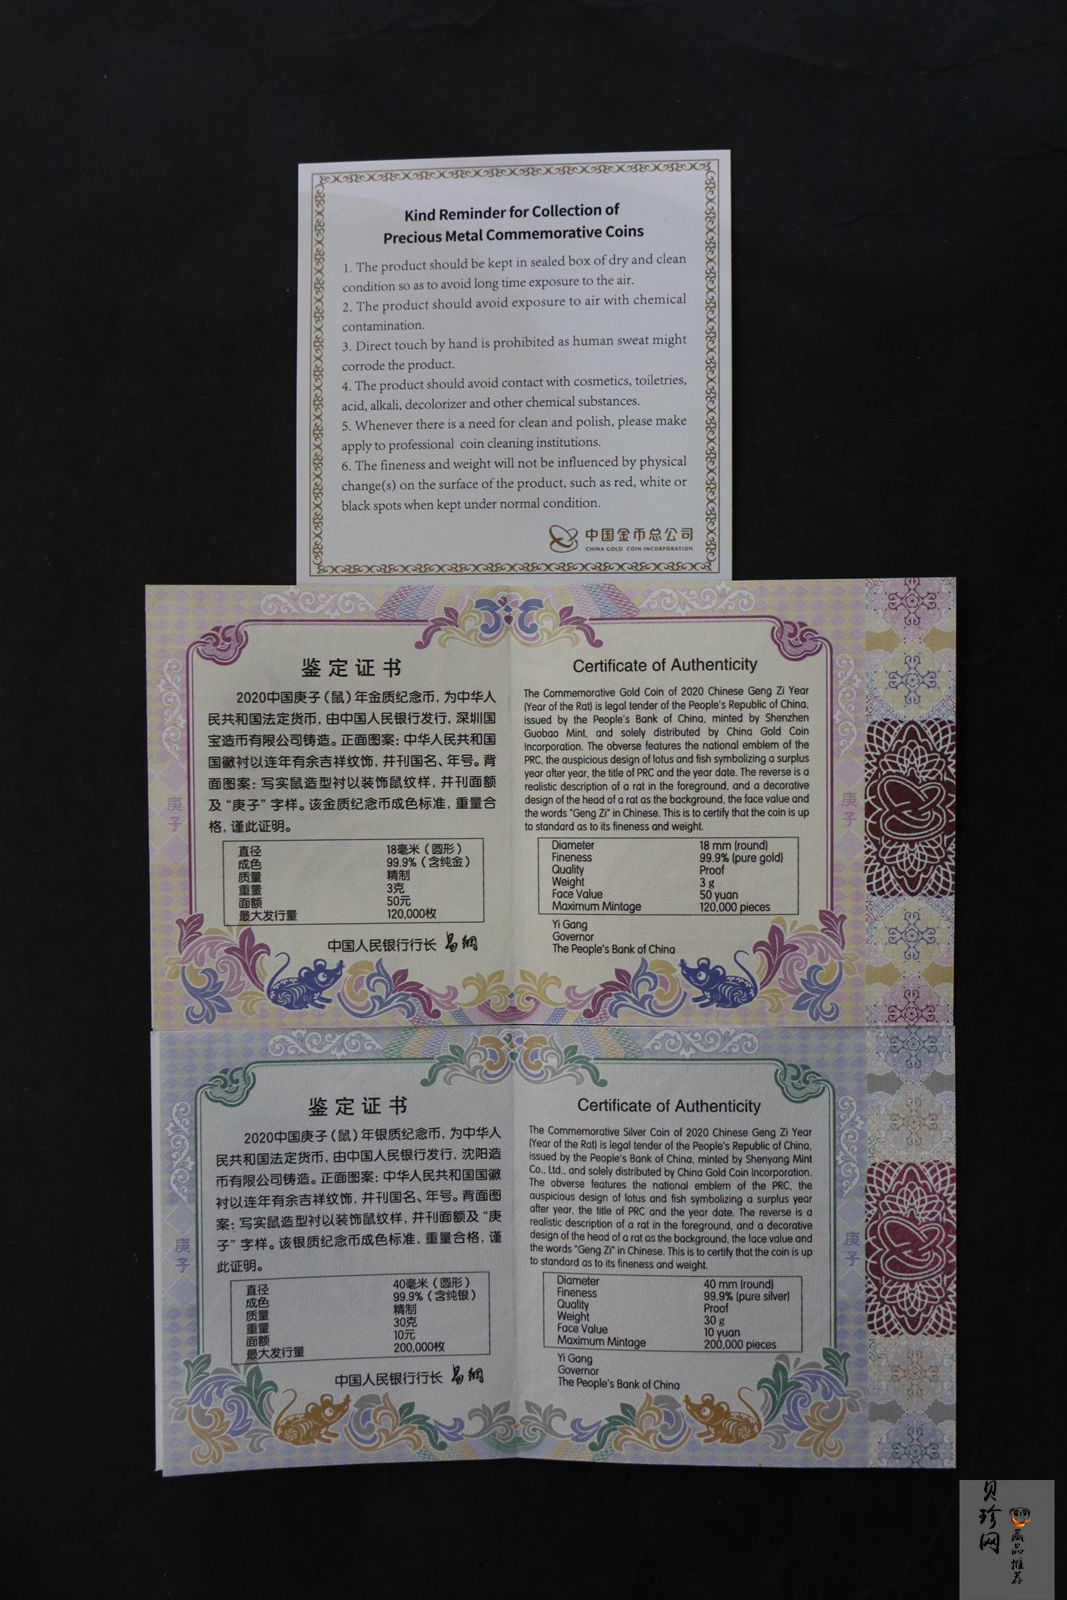 Kind Reminder for Collection of
Precious Metal Commemorative Coins
1. The product should be kept in sealed box of dry and clean
condition so as to avoid long time exposure to the air.
2. The product should avoid exposure to air with chemical
contamination.
3. Direct touch by hand is prohibited as human sweat might
corrode the product.
4. The product should avoid contact with cosmetics, toiletries,
acid, alkali, decolorizer and other chemical substances.
5. Whenever there is a need for clean and polish, please make
apply to professional coin cleaning institutions.
6. The fineness and weight will not be influenced by physical
change(s) on the surface of the product, such as red, white or
black spots when kept under normal condition.
中国金币总公司
CHINA GOLD COIN INCORPORATION
鉴定证书
2020中国庚子（鼠）年金质纪念币，为中华人
民共和国法定货币，由中国人民银行发行，深圳国
宝造币有限公司铸造。正面图案：中华人民共和国
国徽衬以连年有余吉祥纹饰，并刊国名、年号。背
面图案：写实鼠造型衬以装饰鼠纹样，并刊面额
及“庚子”字样。该金质纪念币成色标准，重量合
格，谨此证明。
直径 18毫米（圆形）
成色 99.9%（含纯金）
质量 精制
重量 3克
面额 50元
最大发行量 120,000枚
中国人民银行行长 易纲
庚子
Certificate of Authenticity
The Commemorative Gold Coin of 2020 Chinese Geng Zi Year
(Year of the Rat) is legal tender of the People's Republic of China,
issued by the People's Bank of China, minted by Shenzhen
Guobao Mint, and solely distributed by China Gold Coin
Incorporation. The obverse features the national emblem of the
PRC, the auspicious design of lotus and fish symbolizing a surplus
year after year, the title of PRC and the year date. The reverse is a
realistic description of a rat in the foreground, and a decorative
design of the head of a rat as the background, the face value and
the words "Geng Zi" in Chinese. This is to certify that the coin is up
to standard as to its fineness and weight.
Diameter 18 mm (round)
Fineness 99.9% (pure gold)
Quality Proof
Weight 3 g
Face Value 50 yuan
Maximum Mintage 120,000 pieces
Yi Gang
Governor
The People's Bank of China
庚子
鉴定证书
2020中国庚子（鼠）年银质纪念币，为中华人
民共和国法定货币，由中国人民银行发行，沈阳造
币有限公司铸造。正面图案：中华人民共和国国徽
衬以连年有余吉祥纹饰，并刊国名、年号。背面图
案：写实鼠造型衬以装饰鼠纹样，并刊面额及“庚
子”字样。该银质纪念币成色标准，重量合格，谨
此证明。
直径 40毫米（圆形）
成色 99.9%（含纯银）
质量 精制
重量 30克
面额 10元
最大发行量 200,000枚
中国人民银行行长 易纲
庚子
Certificate of Authenticity
The Commemorative Silver Coin of 2020 Chinese Geng Zi Year
(Year of the Rat) is legal tender of the People's Republic of China,
issued by the People's Bank of China, minted by Shenyang Mint
Co., Ltd., and solely distributed by China Gold Coin Incorporation.
The obverse features the national emblem of the PRC, the
auspicious design of lotus and fish symbolizing a surplus year
after year, the title of PRC and the year date. The reverse is a
realistic description of a rat in the foreground, and a decorative
design of the head of a rat as the background, the face value and
the words "Geng Zi" in Chinese. This is to certify that the coin is up
to standard as to its fineness and weight.
Diameter 40 mm (round)
Fineness 99.9% (pure silver)
Quality Proof
Weight 30 g
Face Value 10 yuan
Maximum Mintage 200,000 pieces
Yi Gang
Governor
The People's Bank of China
庚子
贝珍网
藏品推荐